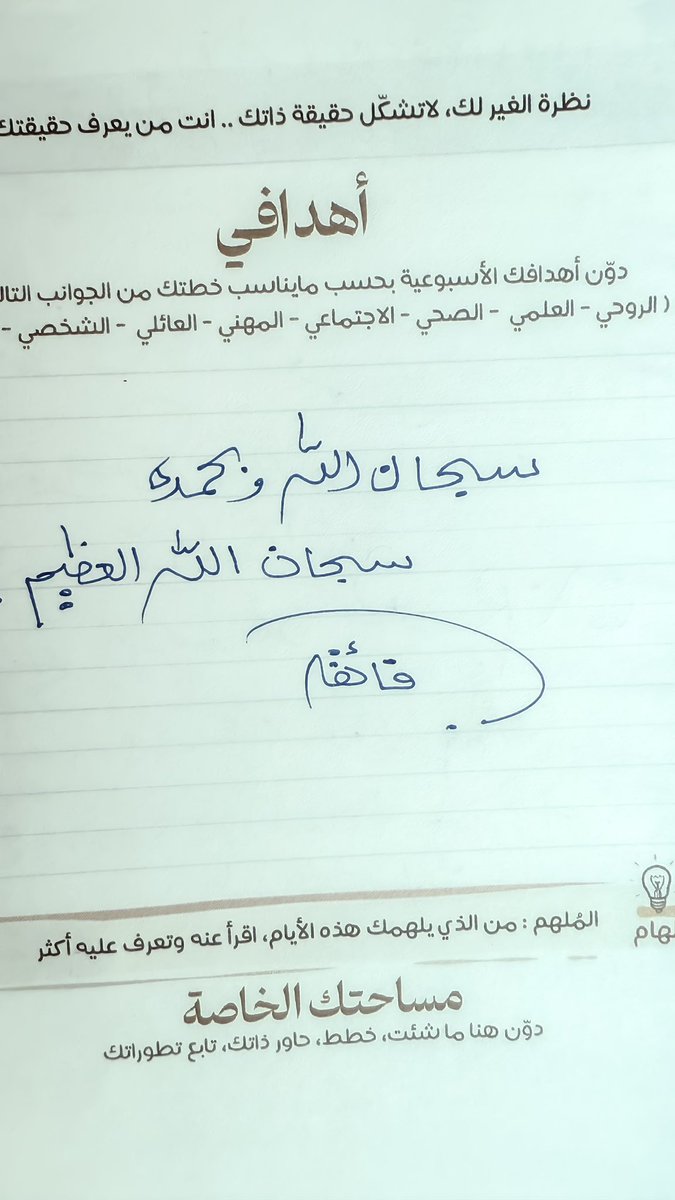 نظرة الغير لك، لاتشكّل حقيقة ذاتك .. انت من يعرف حقيقتك
أهدافي
دوّن أهدافك الأسبوعية بحسب مايناسب خطتك من الجوانب
( الروحي - العلمي - الصحي - الاجتماعي - المهني - العائلي - الشخصي -
سبحان الله وبحمده
سبحان الله العظيم .
المُلهم : من الذي يلهمك هذه الأيام، اقرأ عنه وتعرف عليه أكثر
مساحتك الخاصة
دوّن هنا ما شئت، خطط، حاور ذاتك، تابع تطوراتك